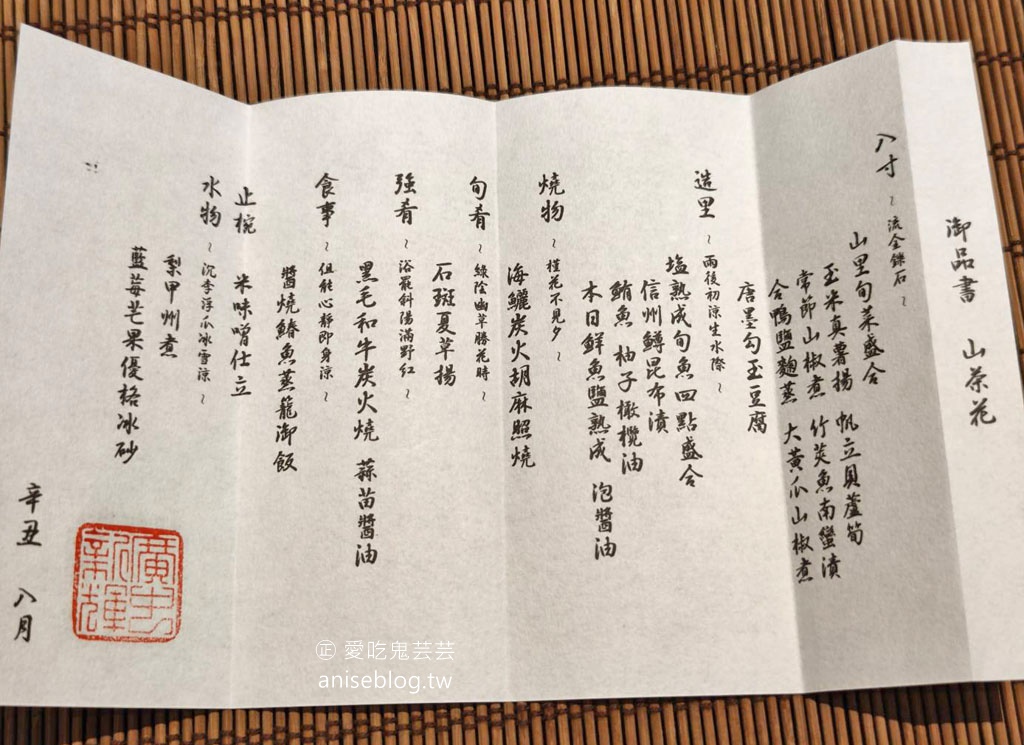 御品書　山茶花
八寸 ~ 流金鑠石 ~
山里旬菜盛合
玉米真薯揚　帆立貝蘆筍
常節山椒煮　竹莢魚南蠻漬
合鴨鹽麴蒸　大黃瓜山椒煮
唐墨勾玉豆腐
造里 ~ 雨後初涼生水際 ~
塩熟成旬魚四點盛合
信州鱒昆布漬
鮪魚　柚子橄欖油
本日鮮魚鹽熟成　泡醬油
燒物 ~ 槿花不見夕 ~
海鱺炭火胡麻照燒
旬肴 ~ 綠陰幽草勝花時 ~
石斑夏草揚
強肴 ~ 浴罷斜陽滿野紅 ~
黑毛和牛炭火燒　蒜苗醬油
食事 ~ 但能心靜即身涼 ~
醬燒鰆魚蒸籠御飯
止椀　米味噌仕立
水物 ~ 沉李浮瓜冰雪涼 ~
梨甲州煮
藍莓芒果優格冰砂
辛丑　八月
㊣ 愛吃鬼芸芸
aniseblog.tw